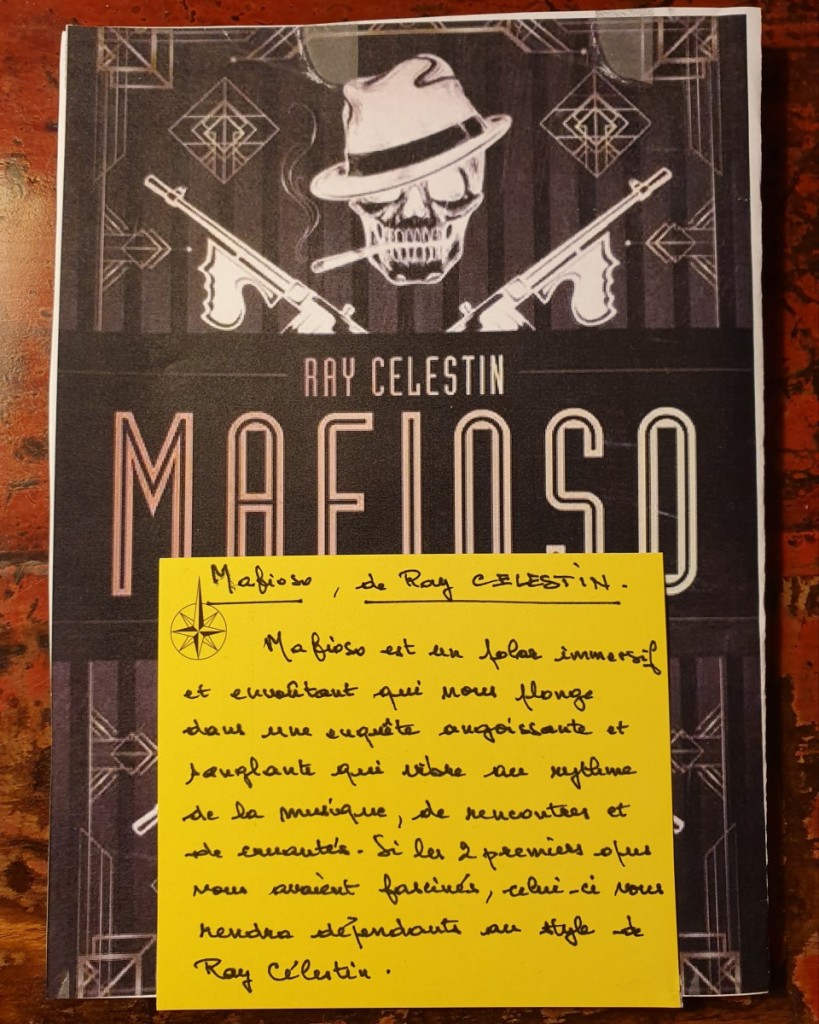 RAY CELESTIN
MAFIOSO
Mafioso, de Ray CELESTIN.
Mafioso est un polar immersif
et envoûtant qui nous plonge
dans une enquête angoissante et
sanglante qui vibre au rythme
de la musique, de rencontres et
de cruautés. Si les 2 premiers opus
vous avaient fascinés, celui-ci vous
rendra dépendants au style de
Ray Célestin.